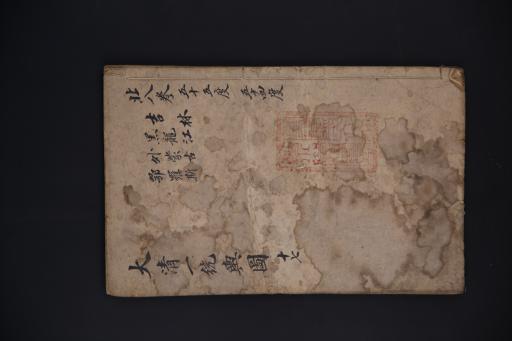 北八卷 五十五度 五十四度
吉林
黑龍江
外蒙古
鄂羅斯
大清一統輿圖 十七